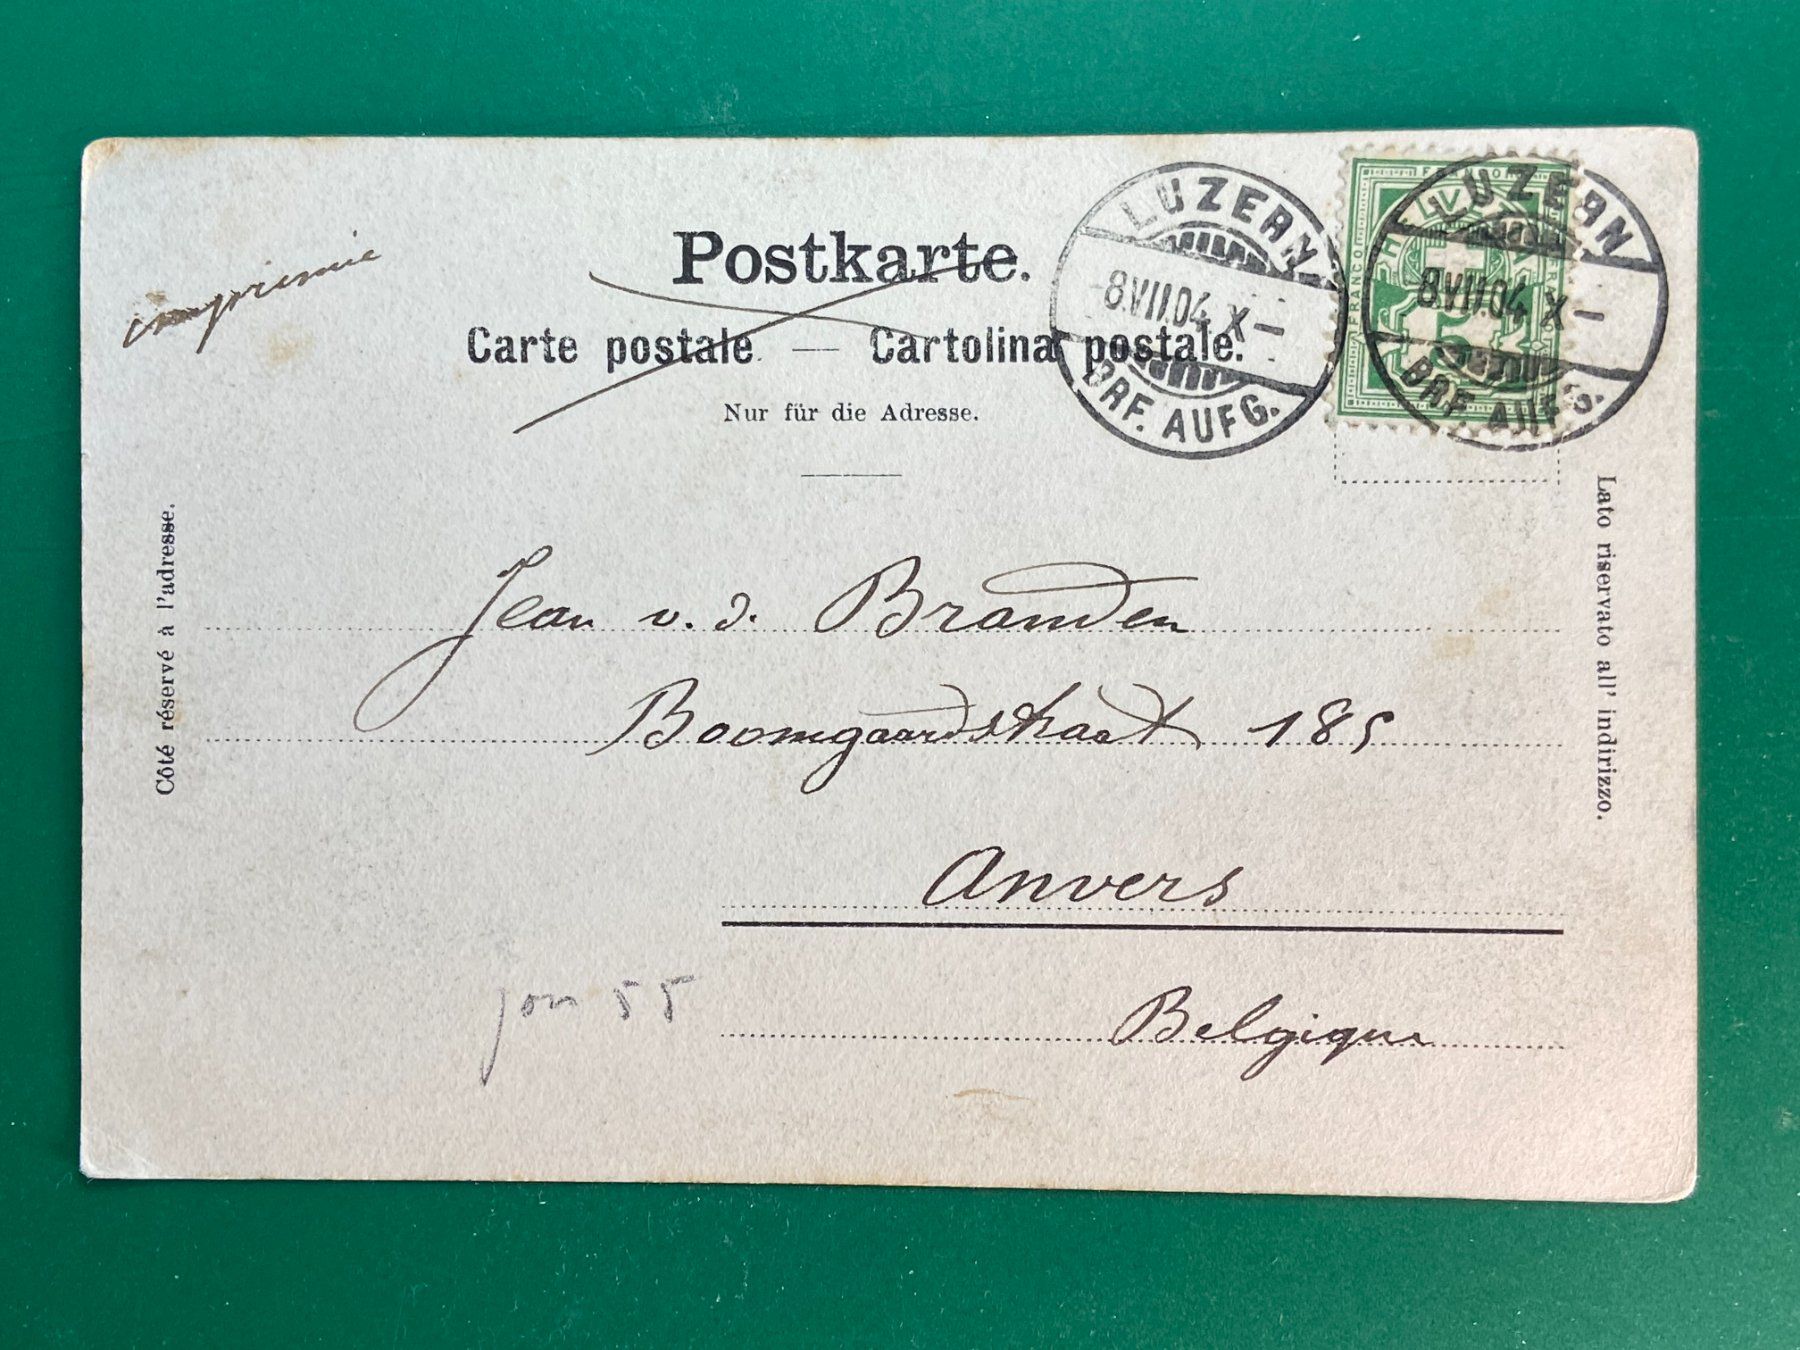 imprimé
Postkarte.
Carte postale — Cartolina postale.
Nur für die Adresse.
LUZERN
8.VII.04 X–
BRF. AUFG.
FRANCO
HELVETIA
5
LUZERN
8.VII.04 X–
BRF. AUFG.
Côté réservé à l'adresse.
Lato riservato all' indirizzo.
Jean v. d. Branden
Boomgaardstraat 185
Anvers
Belgique
55